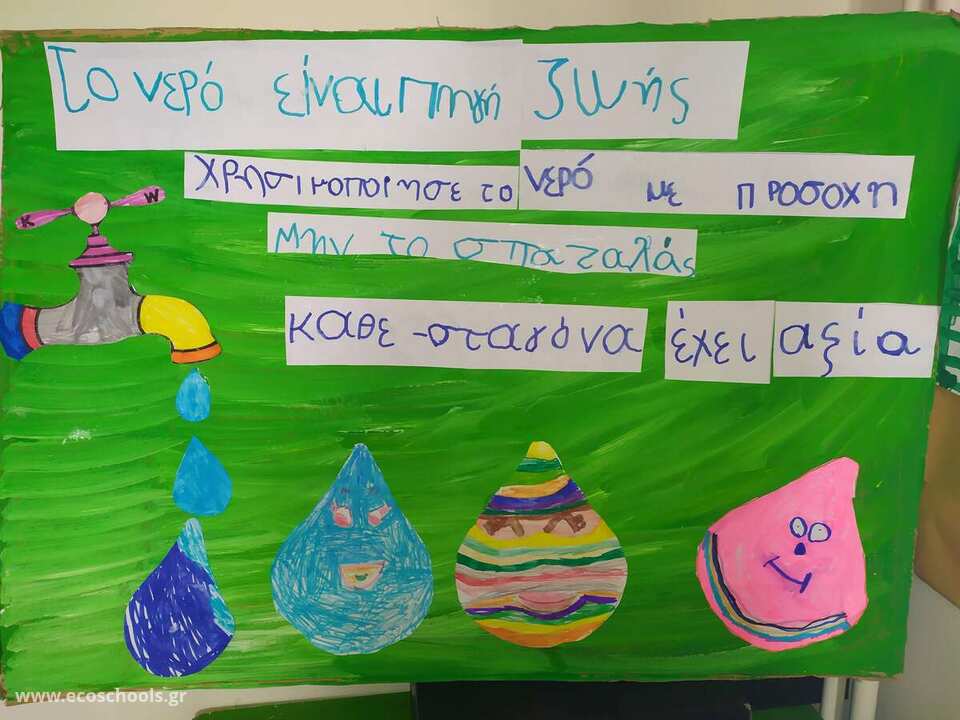 Το νερό είναι πηγή ζωής
Χρησιμοποιησε το νερό με προσοχη
Μην το σπαταλάς
Καθε σταγόνα έχει αξία
K W
www.ecoschools.gr